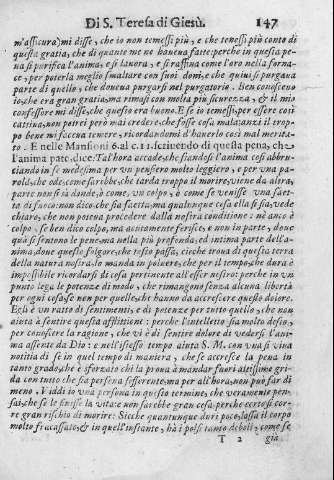 Di S. Teresa di Giesù. 147
m'assicura) mi disse, che io non temessi più, e che tenessi più conto di
questa gratia, che di quante me ne haueua fatte: perche in questa pe-
na si purifica l'anima, e si lauora, e si raffina come l'oro nella forna-
ce, per poterla meglio smaltare con suoi doni, e che quiui si purgaua
parte di quello, che doueua purgarsi nel purgatorio. Ben conosceuo
io, che era gran gratia, ma rimasi con molta più sicurezza, & il mio
confessore mi disse, che questo era buono. E se io temessi, per essere così
cattiua, non potei però mai credere, che fusse cosa mala, anzi il trop-
po bene mi faceua temere, ricordandomi d'hauerlo così mal merita-
to. E nelle Mansioni 6. al c. 11. scriuendo di questa pena, che
l'anima pate, dice. Tal'hora accade, che standosi l'anima così abbru-
ciando in se medesima per un pensiero molto leggiero, e per una pa-
rola, che ode, come sarebbe, che tarda troppo il morire, viene da altra
parte non si sà donde, ò come, un colpo, ò come se venisse una saet-
ta di fuoco: non dico che sia saetta, ma qualunque cosa ella si sia, vede
chiaro, che non poteua procedere dalla nostra conditione: nè anco è
colpo, se ben dico colpo, ma acutamente ferisce, e non in parte, doue
quà si sentono le pene, ma nella più profonda, ed intima parte dell'a-
nima, doue questo folgore, che tosto passa, ciò che troua di questa terra
della natura nostra, lo manda in poluere, che per il tempo, che dura è
impossibile ricordarsi di cosa pertinente all'esser nostro: perche in un
punto lega le potenze di modo, che rimangono senza alcuna libertà
per ogni cosa, se non per quelle, che hanno da accrescere questo dolore.
Egli è un ratto di sentimenti, e di potenze per tutto quello, che non
aiuta à sentire questa afflittione: perche l'intelletto stà molto desto,
per conoscere la ragione, che vi è di sentire dolore di vedersi l'ani-
ma assente da Dio: e nell'istesso tempo aiuta S. M. con una sì viua
notitia di se in quel tempo di maniera, che se accresce la pena in
tanto grado, che è sforzato chi la proua à mandar fuori altissime gri-
da con tutto che sia persona sofferente, ma per all'hora, non può far di
meno. Vidi io una persona in questo termine, che veramente pen-
sai, che se le finisse la vita: e non sarebbe gran cosa perche certo si cor-
re gran rischio di morire: Sicche quantunque duri poco, lassa il corpo
molto fracassato, & in quell'instante, hà i polsi tanto deboli, come se
T 2 già